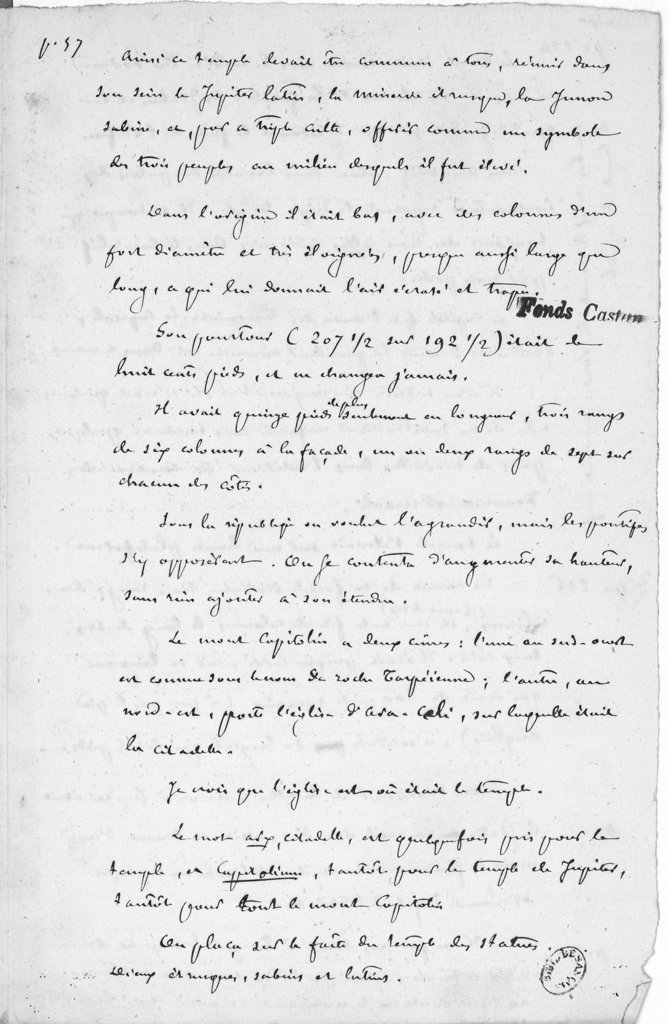 p. 57
Ainsi ce temple devait être commun à tous, réunir dans
son sein le Jupiter latin, la minerve étrusque, la Junon
sabine, et, par ce triple culte, offrir comme un symbole
des trois peuples au milieu desquels il fut élevé.
Dans l'origine il était bas, avec des colonnes d'un
fort diamètre et très éloignées, presque aussi large que
long, ce qui lui donnait l'air écrasé et trapu.
Fonds Castan
Son pourtour (207 1/2 sur 192 1/2) était de
huit cents pieds, et ne changea jamais.
Il avait quinze pieds de plus seulement en longueur, trois rangs
de six colonnes à la façade, un ou deux rangs de sept sur
chacun des côtés.
Sous la république on voulut l'agrandir, mais les pontifes
s'y opposèrent. On se contenta d'augmenter sa hauteur,
sans rien ajouter à son étendue.
Le mont Capitolin a deux cimes : l'une au sud-ouest
est connue sous le nom de roche Tarpéienne ; l'autre, au
nord-est, porte l'église d'Ara-Celi, sur laquelle était
la citadelle.
Je crois que l'église est où était le temple.
Le mot arx, citadelle, est quelquefois pris pour le
temple, et Capitolium, tantôt pour le temple de Jupiter,
tantôt pour tout le mont Capitolin
On plaça sur le faîte du temple des statues
Dieux étrusques, sabins et latins.